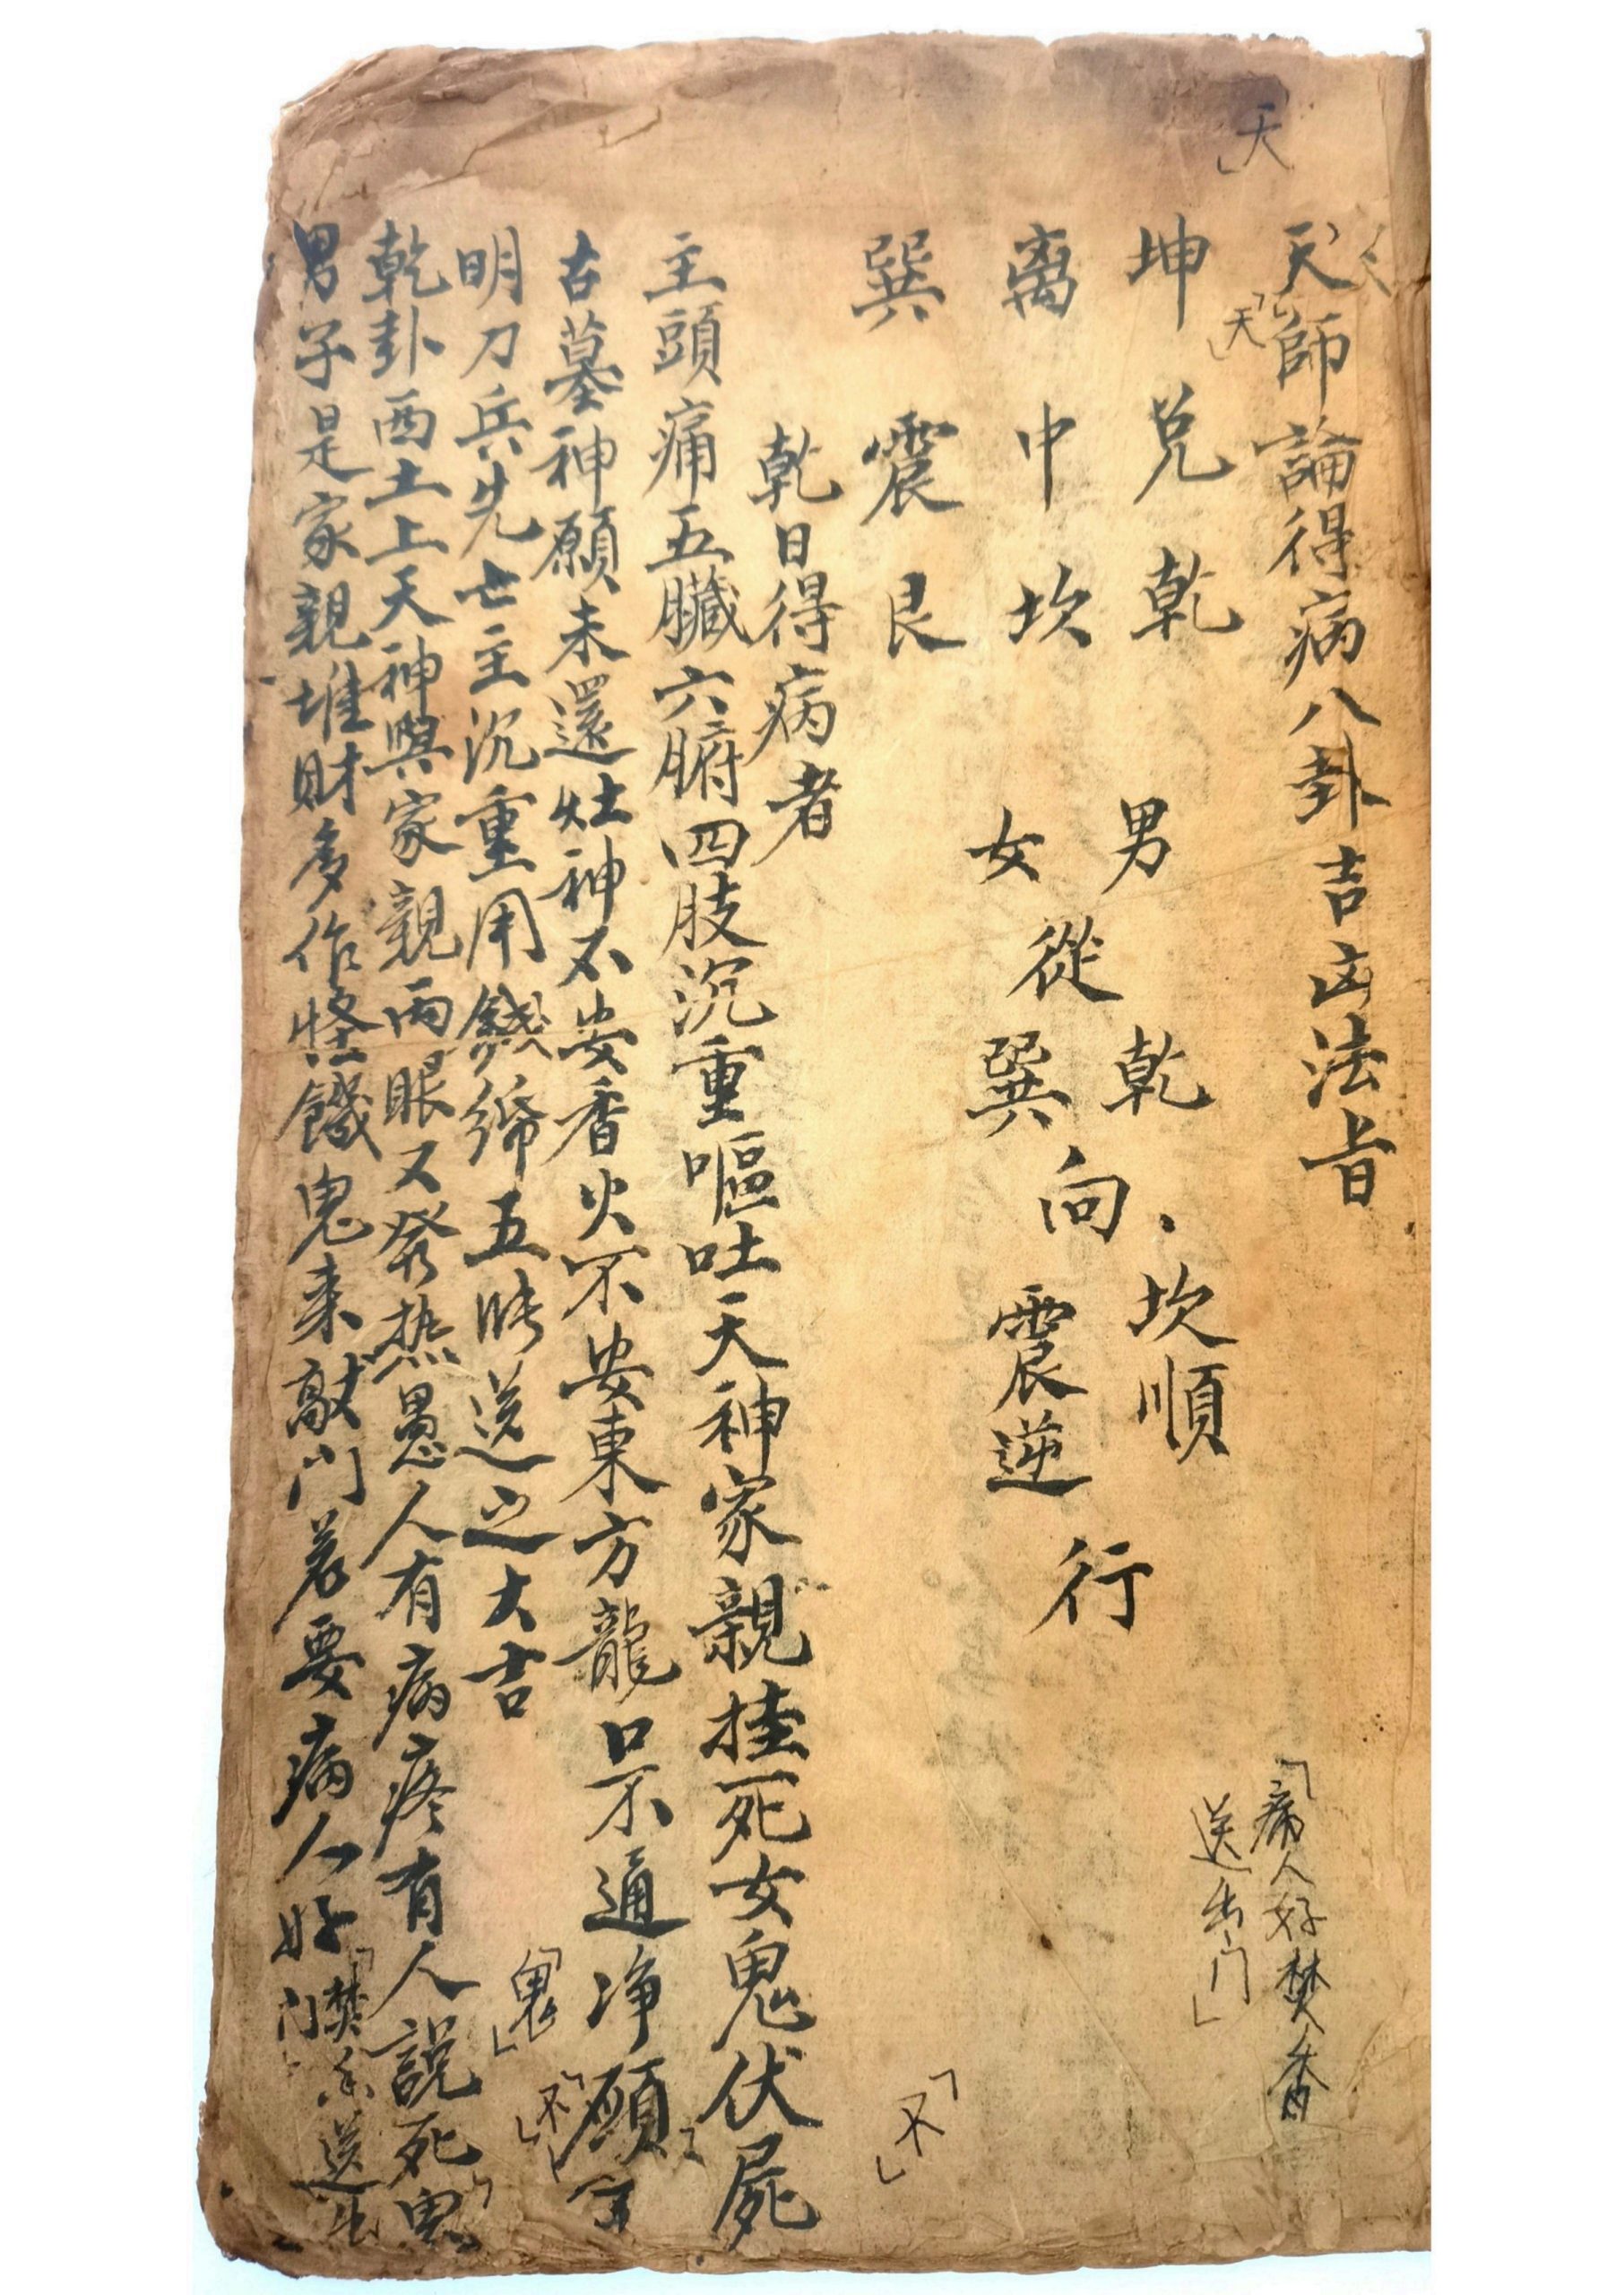 天
天師論得病八卦吉凶法旨
「天」
「病人好焚香
送出门」
坤 兌 乾
男 乾 坎順
離 中 坎
從 向 行
女 巽 震逆
巽 震 艮
乾日得病者
「不」
主頭痛五臟六腑四肢沉重嘔吐天神家親挂死女鬼伏屍
古墓神願未還灶神不安香火不安東方龍口不通净願
「不」
「鬼」
明刀兵先亡主沉重用錢 五 送之大吉
乾卦西土上天神與家親両眼又發热愚人有病疼有人説死鬼
男子是家親堆財多作怪饑鬼来敲门若要病人好
「焚香送出
门」